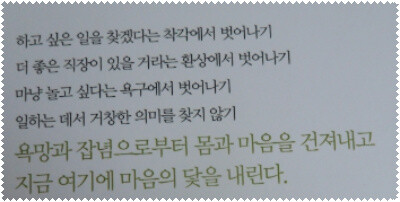 하고 싶은 일을 찾겠다는 착각에서 벗어나기
더 좋은 직장이 있을 거라는 환상에서 벗어나기
마냥 놀고 싶다는 욕구에서 벗어나기
일하는 데서 거창한 의미를 찾지 않기
욕망과 잡념으로부터 몸과 마음을 건져내고
지금 여기에 마음의 닻을 내린다.